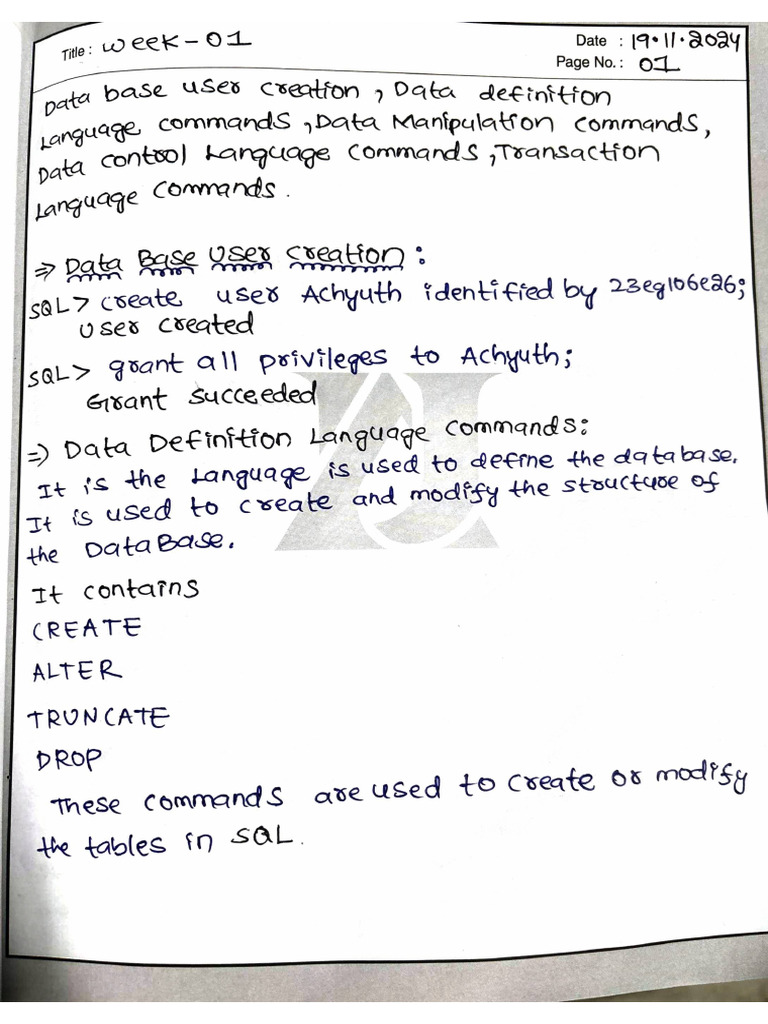 Title : Week-01
Date : 19.11.2024
Page No. : 01
Data base user creation, Data definition
Language commands, Data Manipulation commands,
Data control Language commands, Transaction
Language commands.
⇒ Data Base User Creation:
SQL> create user Achyuth identified by 23eg106e26;
User created
SQL> grant all privileges to Achyuth;
Grant succeeded
⇒ Data Definition Language commands:
It is the Language is used to define the database.
It is used to create and modify the structure of
the DataBase.
It contains
CREATE
ALTER
TRUNCATE
DROP
These commands are used to create or modify
the tables in SQL.